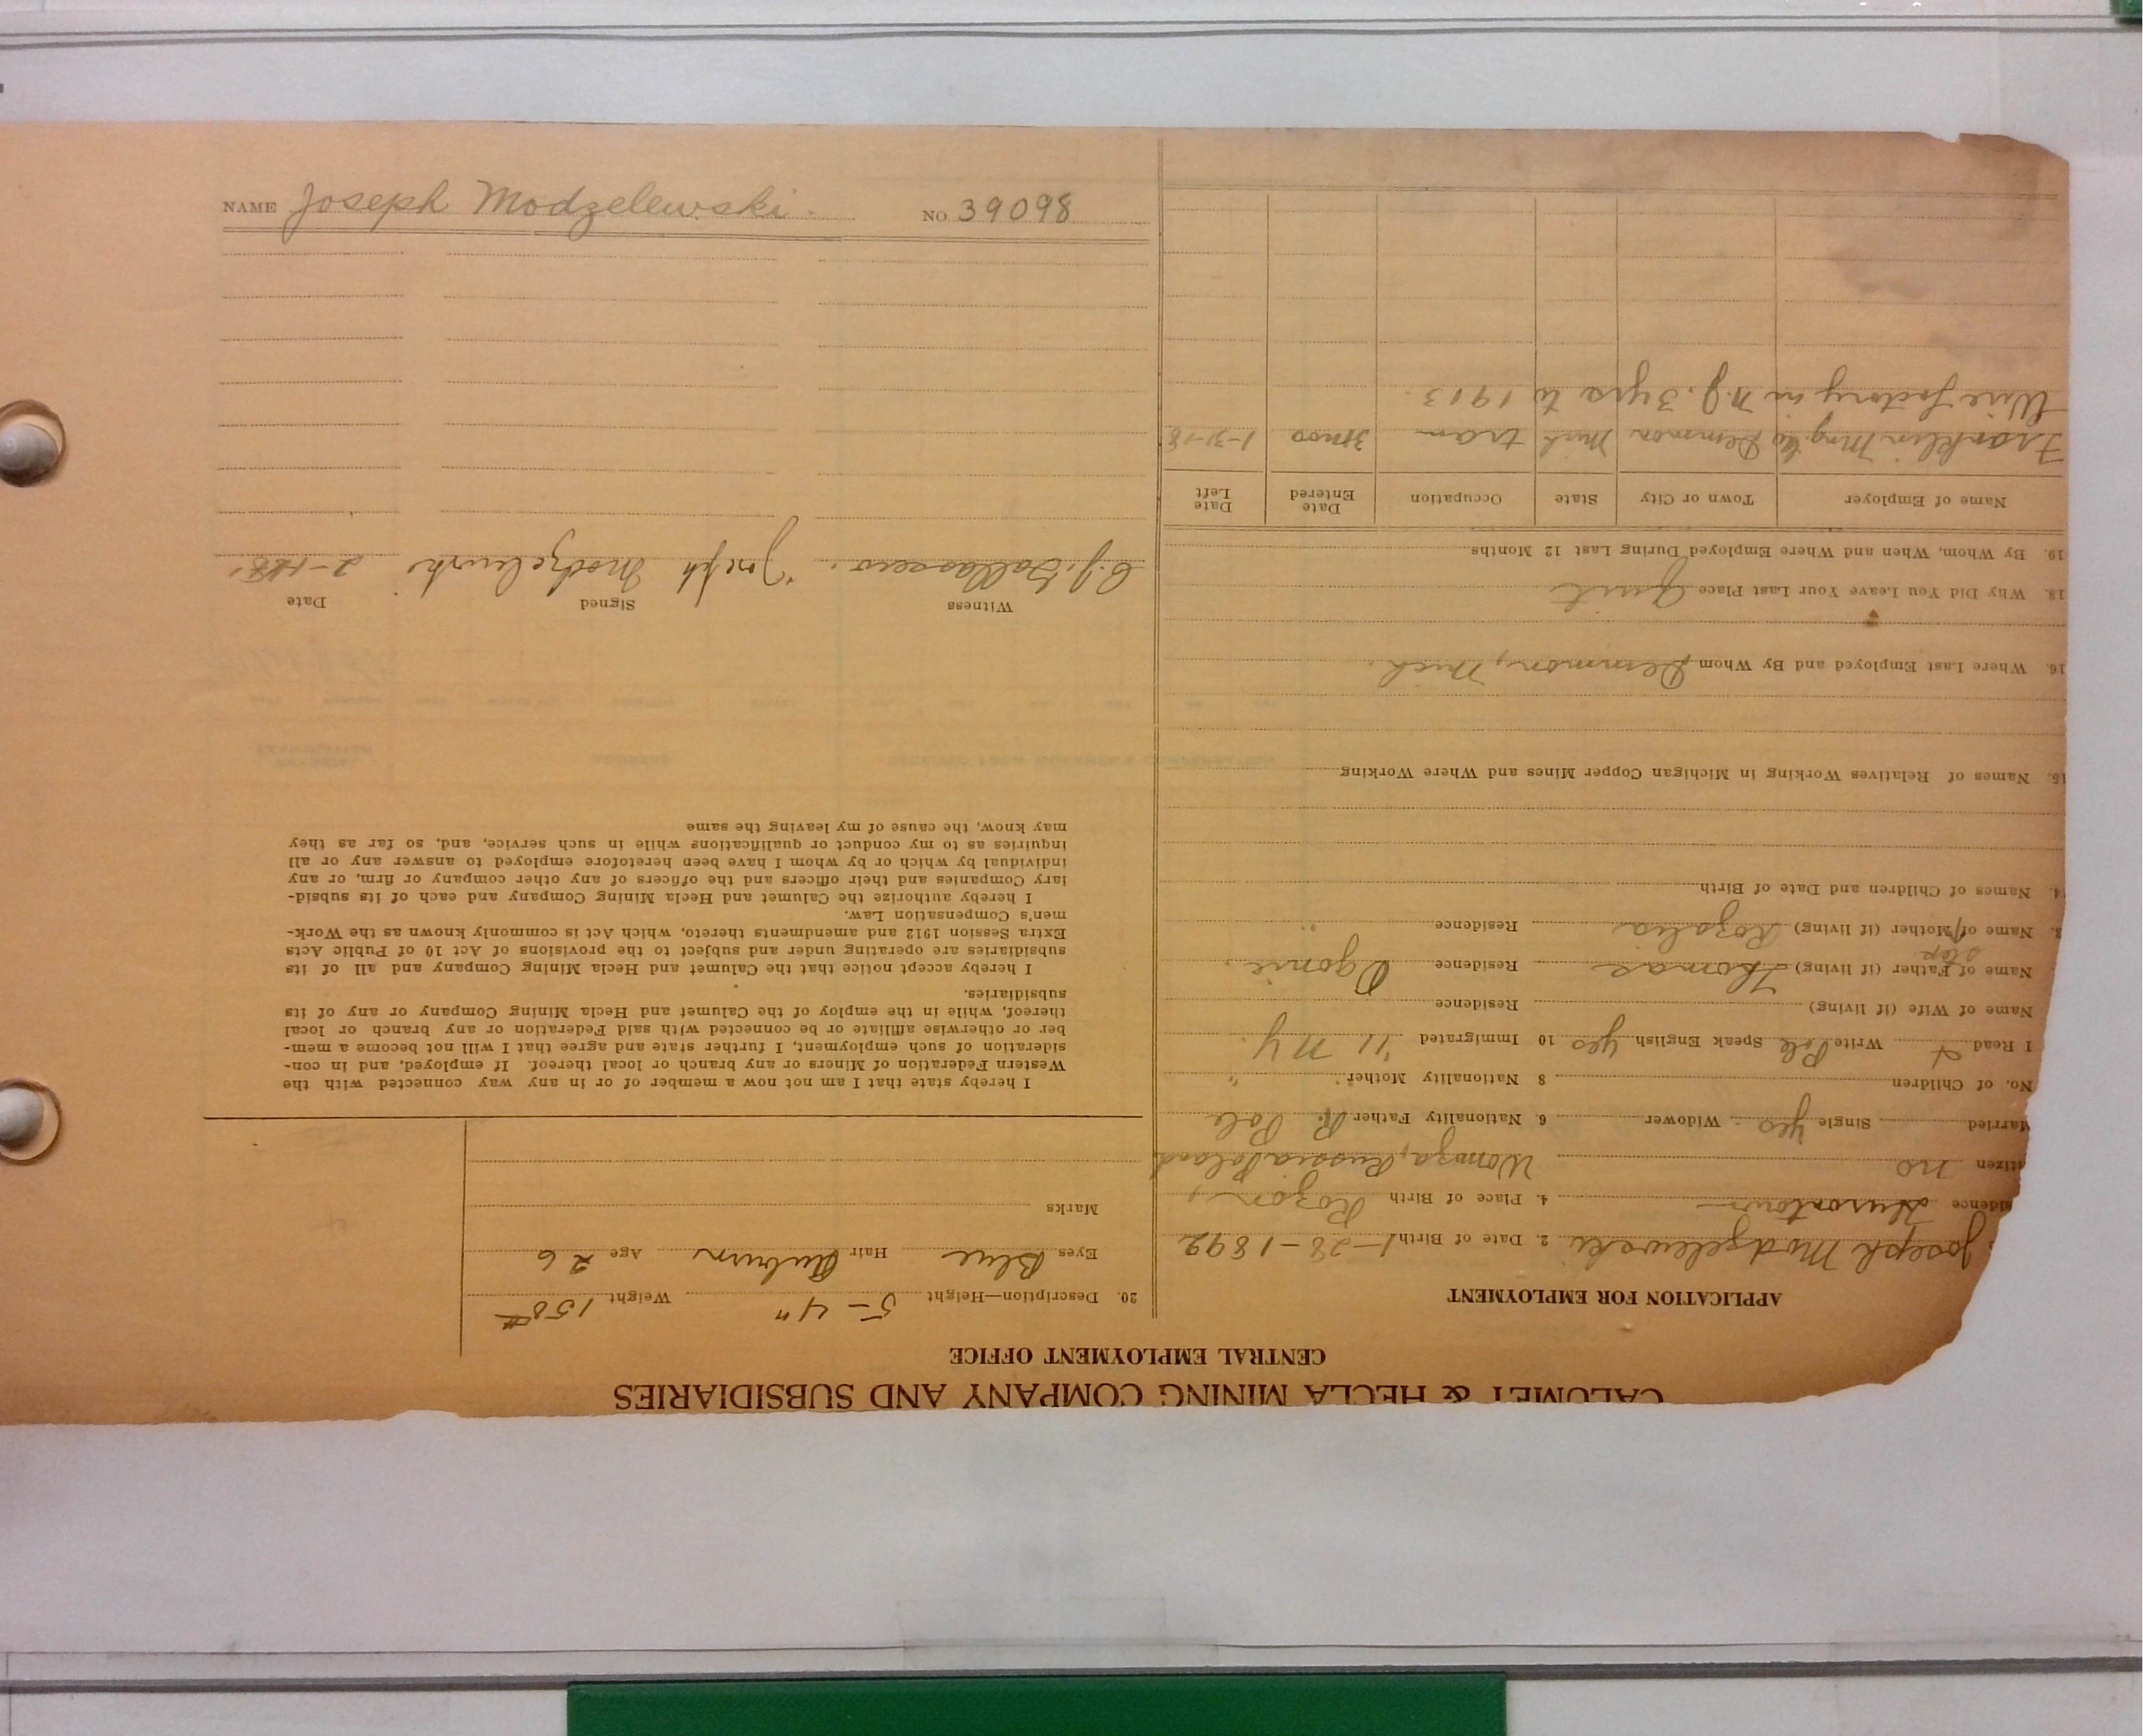 NAME Joseph Modzelewski. NO. 39098
CALUMET & HECLA MINING COMPANY AND SUBSIDIARIES
CENTRAL EMPLOYMENT OFFICE
APPLICATION FOR EMPLOYMENT
Joseph Modzelewski 2. Date of Birth 1-28-1892
sidence Hurontown 4. Place of Birth Rozon,
itizen no Womza, Russia Poland
Married Single yes Widower 6. Nationality Father R. Pole
No. of Children 8 Nationality Mother " "
I Read Write Pole Speak English yes 10 Immigrated '11 N.Y.
Name of Wife (if living) Residence
Name of Father (if living) Thomas Residence
step
3. Name of Mother (if living) Rozalia Residence "
14. Names of Children and Date of Birth
15. Names of Relatives Working in Michigan Copper Mines and Where Working
16. Where Last Employed and By Whom Demmon, Mich.
18. Why Did You Leave Your Last Place Quit
19. By Whom, When and Where Employed During Last 12 Months
Name of Employer Town or City State Occupation Date Entered Date Left
Franklin Mng Co Demmon Mich tram 3 mos 1-31-18
Wire factory in N.J. 3 yrs to 1913.
20. Description—Height 5-4" Weight 158#
Eyes Blue Hair Auburn Age 26
Marks
I hereby state that I am not now a member of or in any way connected with the
Western Federation of Miners or any branch or local thereof. If employed, and in con-
sideration of such employment, I further state and agree that I will not become a mem-
ber or otherwise affiliate or be connected with said Federation or any branch or local
thereof, while in the employ of the Calumet and Hecla Mining Company or any of its
subsidiaries.
I hereby accept notice that the Calumet and Hecla Mining Company and all of its
subsidiaries are operating under and subject to the provisions of Act 10 of Public Acts
Extra Session 1912 and amendments thereto, which Act is commonly known as the Work-
men's Compensation Law.
I hereby authorize the Calumet and Hecla Mining Company and each of its subsid-
iary Companies and their officers and the officers of any other company or firm, or any
individual by which or by whom I have been heretofore employed to answer any or all
inquiries as to my conduct or qualifications while in such service, and, so far as they
may know, the cause of my leaving the same
Witness Signed Date
Joseph Modzelewski